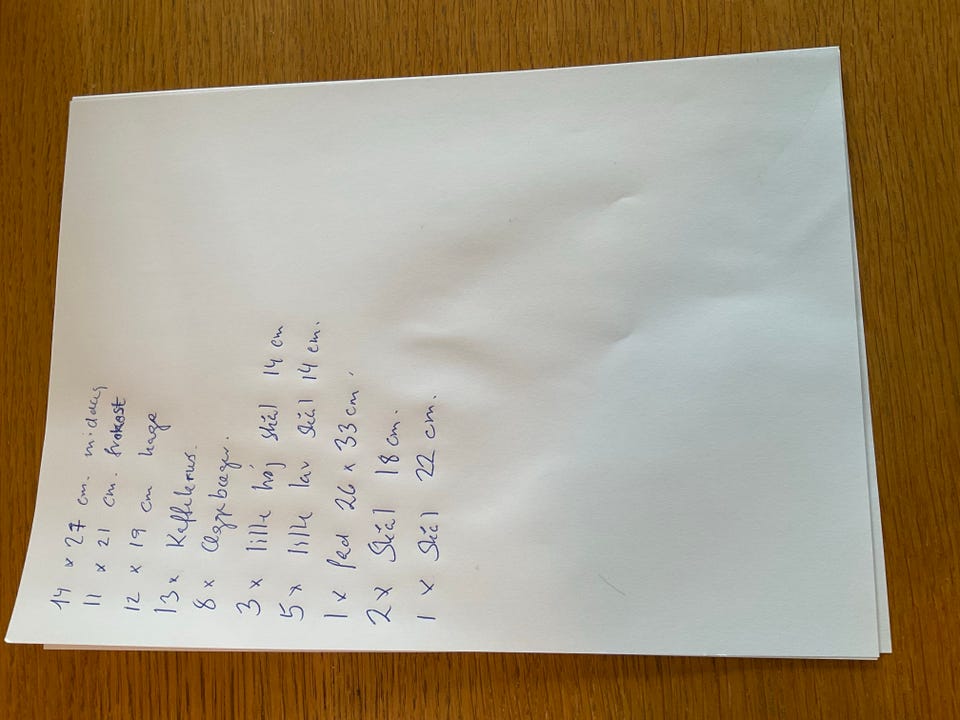 14 x 27 cm. middag
11 x 21 cm. frokost
12 x 19 cm kage
13 x Kaffekrus.
8 x Æggebæger.
3 x lille høj skål 14 cm
5 x lille lav skål 14 cm.
1 x fad 26 x 33 cm.
2 x Skål 18 cm.
1 x Skål 22 cm.